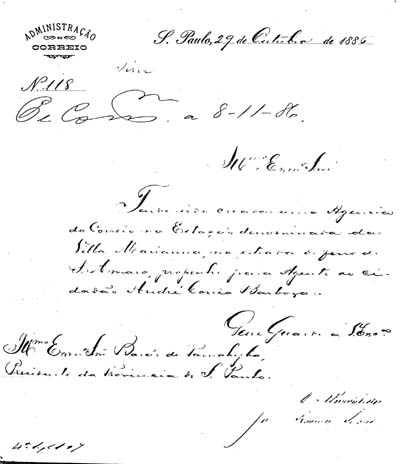 ADMINISTRAÇÃO
DO
CORREIO
S. Paulo, 29 de Outubro de 1886
Nº 118
a 8-11-86.
Illmo Exmo Snr
Tendo sido creada uma Agencia
do Correio na Estação denominada da
Villa Marianna, na estrada de ferro de
Sto Amaro, proponho para Agente ao ci-
dadão André Corrêa Barboza.
Deus Guarde a V. Exca
Illmo Exmo Snr Barão de Parnahyba,
Presidente da Provincia de S. Paulo.
O Administrador